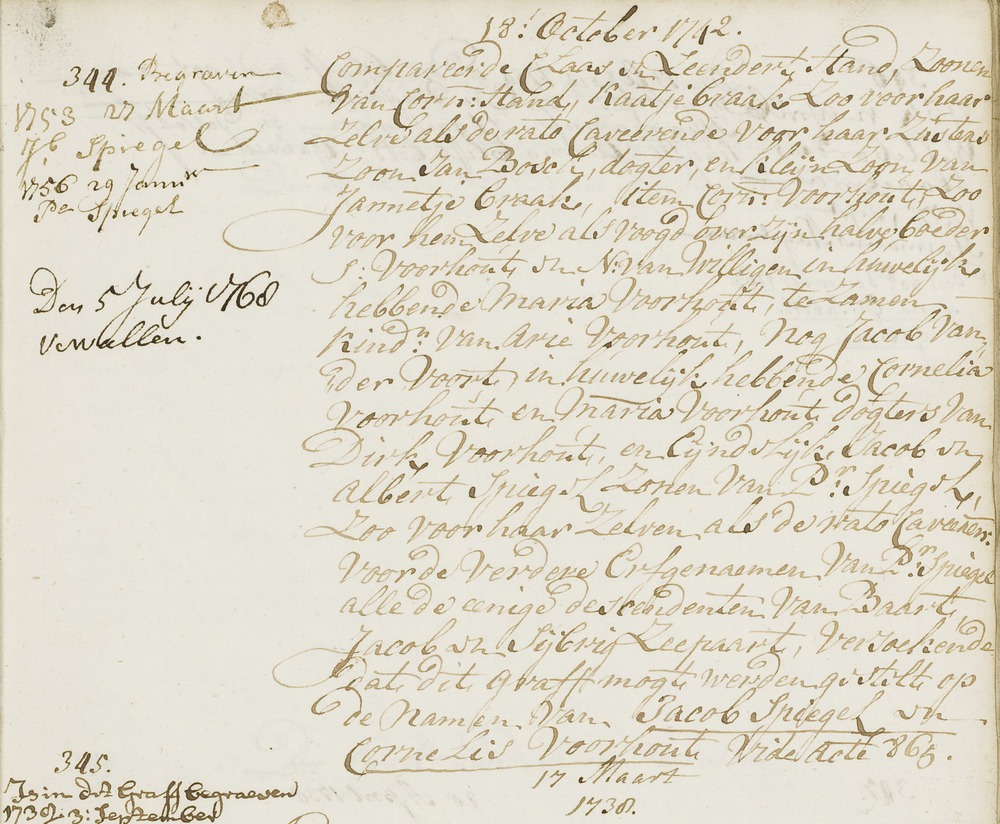 18.' October 1742.
344. Begraven
1753 27 Maart
Spiegel
1756 29 Januw
Pr Spiegel
Den 5 Julij 1768
vervallen.
Compareerde Claas en Leendert Stand, Zoonen
van Corn: Stand, Kaatje braak Zoo voor haar
Zelve als de rato Caveerende voor haar Zusters
Zoon Jan Bosch, dogter, en kleijn Zoon van
Jannetje Craak, item Corn: Voorhout, Zoo
voor hem Zelve als voogd over zijn halve broeder
S: Voorhout, en N: van Willigen in huwelijk
hebbende Maria Voorhout, te Zamen
Kind.n van Arie Voorhout, Nog Jacob Van
der Voort, in huwelijk hebbende Cornelia
Voorhout en Maria Voorhout dogters Van
Dirk Voorhout, en Eijndelijk Jacob en
Albert Spiegel Zonen Van P.r Spiegel,
Zoo voor haar Zelven als de rato Caveeren:
voor de verdere Erfgenaemen Van P.r Spiegel
alle de eenige descendenten Van Baart
Jacob en Sijbrig Zeepaart, Versoekende
dat dit graff mogt werden gestelt op
de Namen Van Jacob Spiegel en
Cornelis Voorhout Vide acte 865.
345.
Is in dit Graff begraeven
1738 3: September
17 Maart
1738.